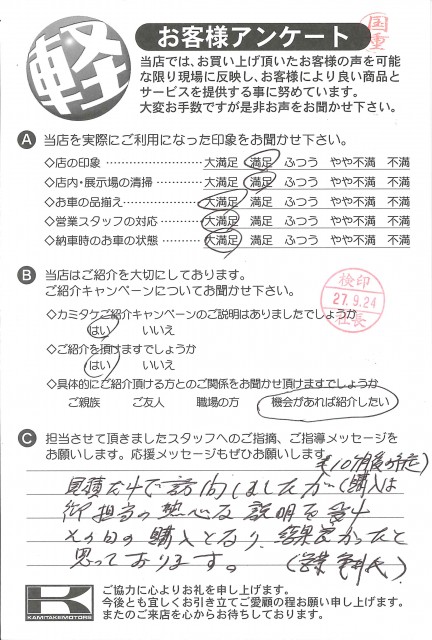 軽
お客様アンケート
国
重
当店では、お買い上げ頂いたお客様の声を可能
な限り現場に反映し、お客様により良い商品と
サービスを提供する事に努めています。
大変お手数ですが是非お声をお聞かせ下さい。
A 当店を実際にご利用になった印象をお聞かせ下さい。
◇店の印象 大満足 満足 ふつう やや不満 不満
◇店内・展示場の清掃 大満足 満足 ふつう やや不満 不満
◇お車の品揃え 大満足 満足 ふつう やや不満 不満
◇営業スタッフの対応 大満足 満足 ふつう やや不満 不満
◇納車時のお車の状態 大満足 満足 ふつう やや不満 不満
B 当店はご紹介を大切にしております。
ご紹介キャンペーンについてお聞かせ下さい。
検印
27.9.24
社長
◇カミタケご紹介キャンペーンのご説明はありましたでしょうか
はい いいえ
◇ご紹介を頂けますでしょうか
はい いいえ
◇具体的にご紹介頂ける方とのご関係をお聞かせ頂けますでしょうか
ご親族 ご友人 職場の方 機会があれば紹介したい
C 担当させて頂きましたスタッフへのご指摘、ご指導メッセージを
お願いします。応援メッセージもぜひお願いします。
見積だけで訪問しましたが(購入は
御担当の熱心な説明を受け
の購入となり、結果良かったと
思っております。(営業
K
KAMITAKEMOTORS
ご協力に心よりお礼を申し上げます。
今後とも宜しくお引き立てご愛顧の程お願い申し上げます。
またのご来店を心からお待ちしております。